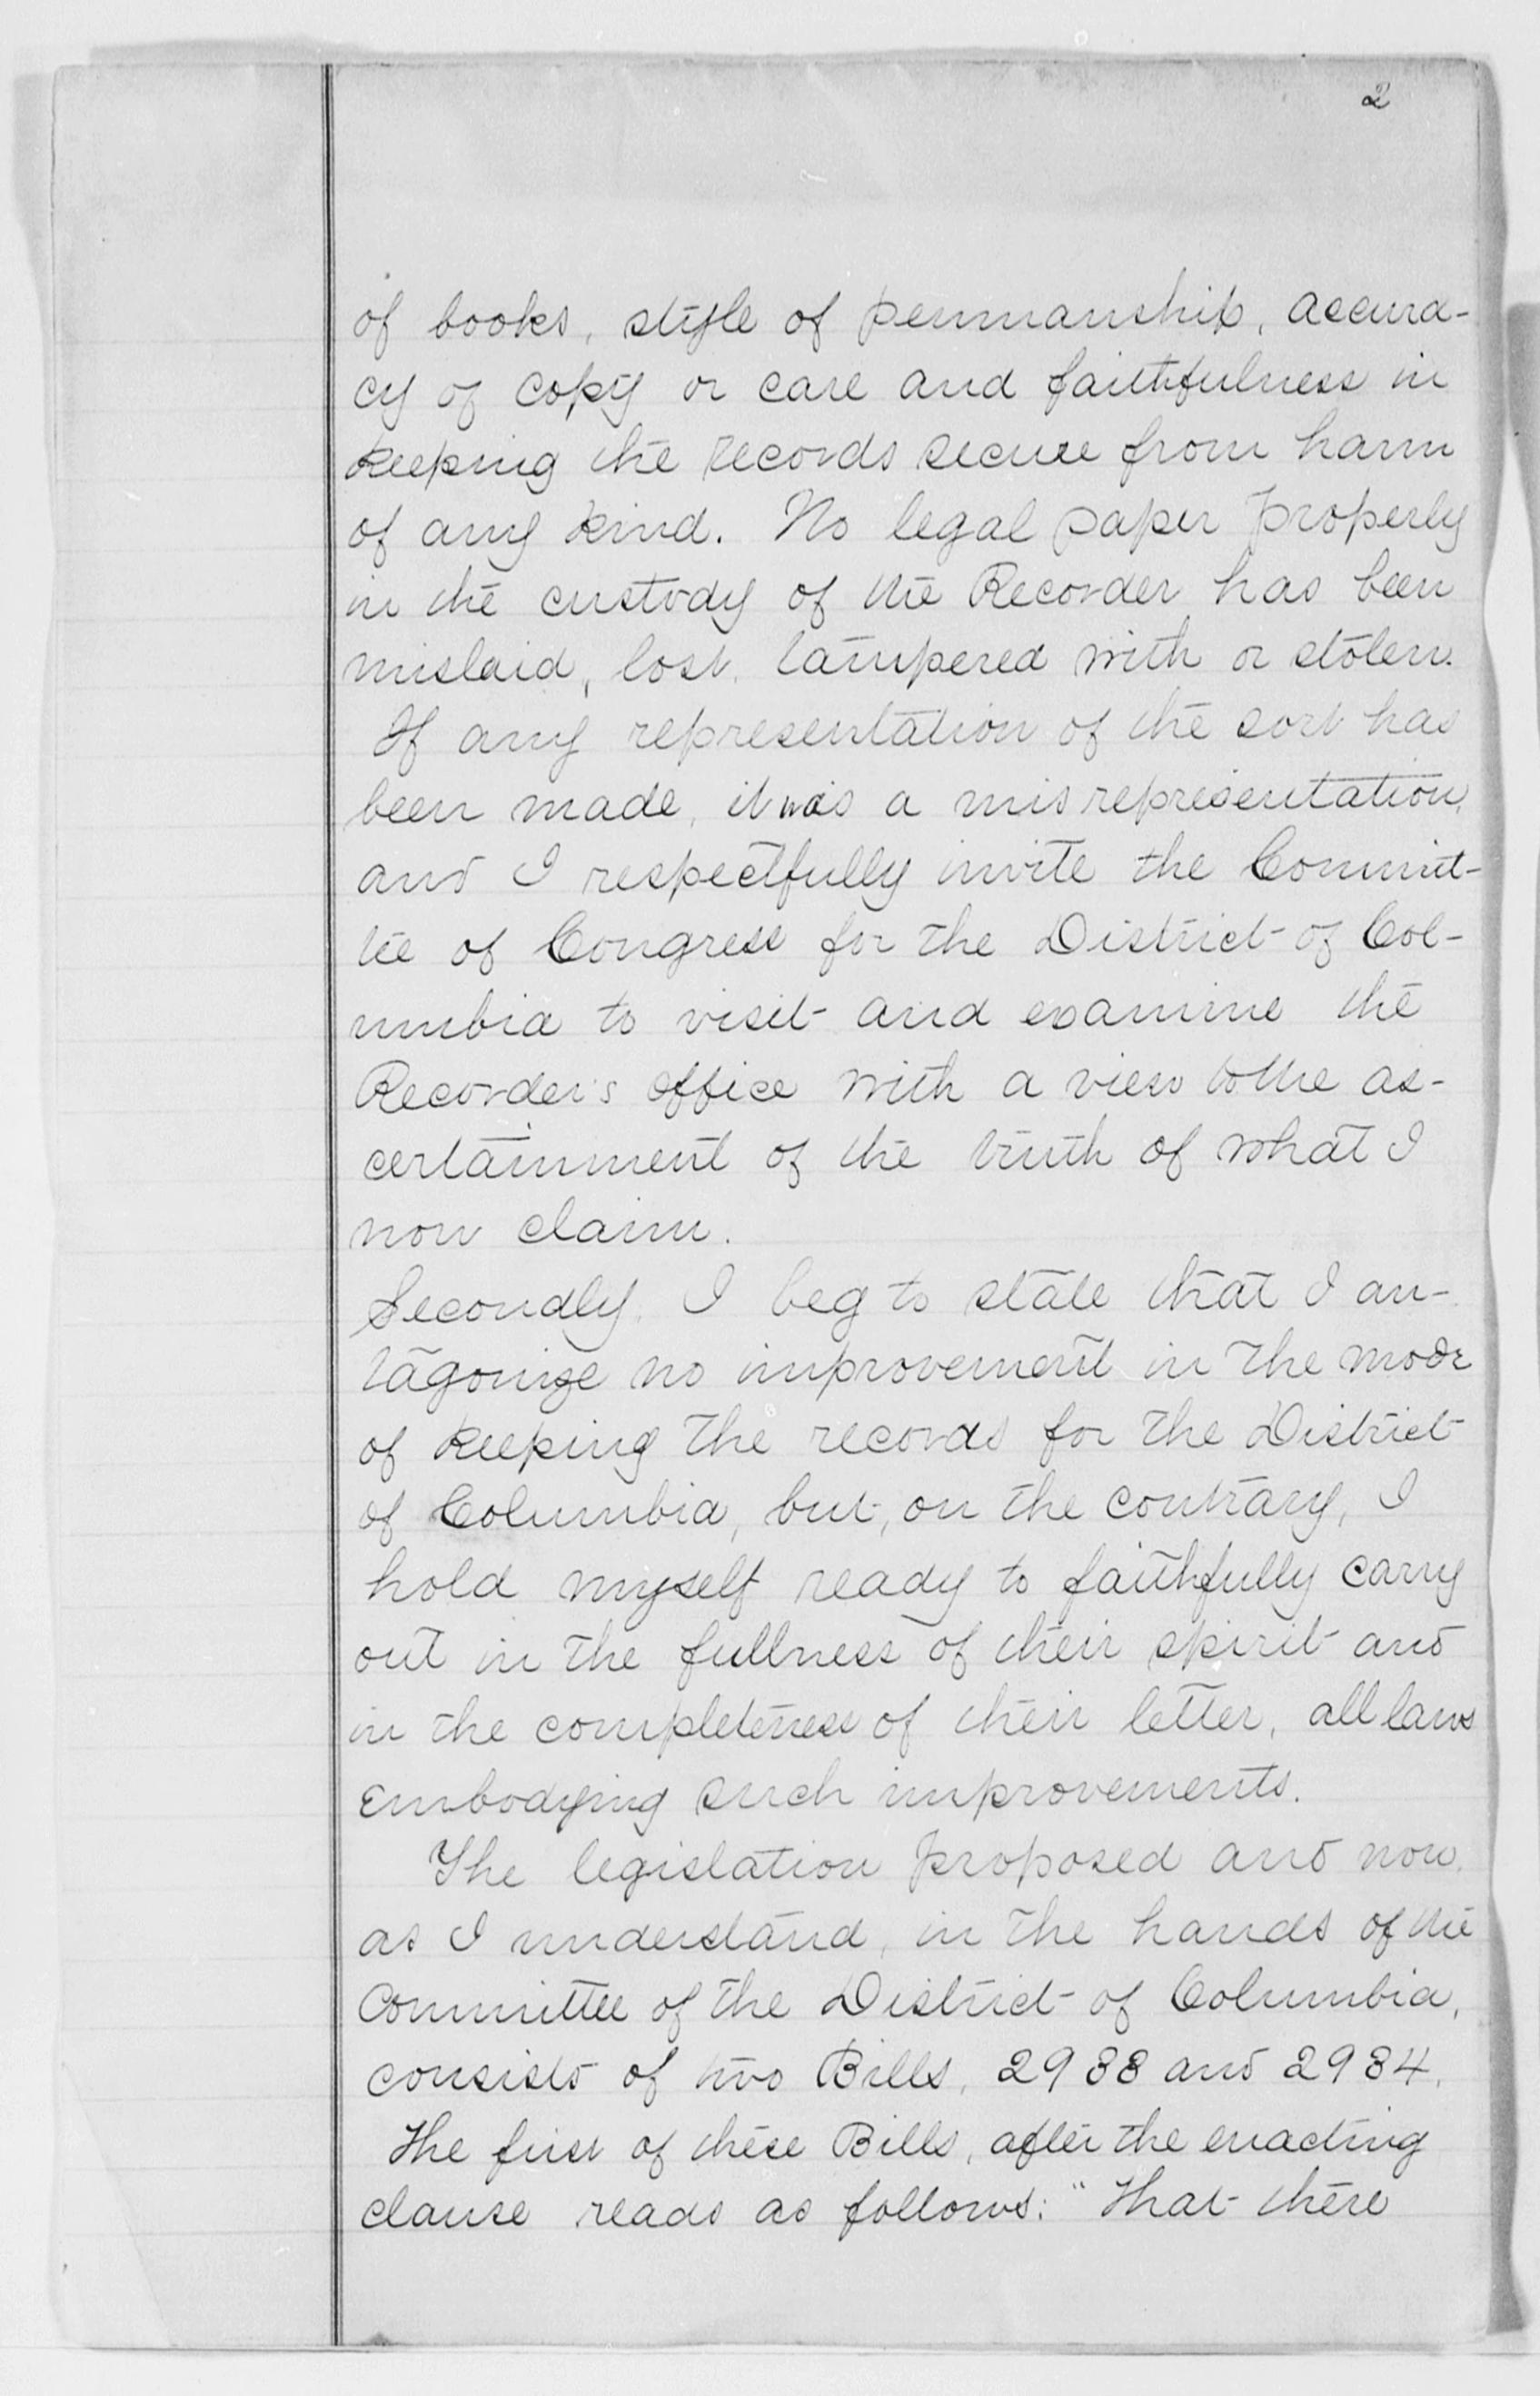 2
of books, style of penmanship, accura-
cy of copy or care and faithfulness in
keeping the records secure from harm
of any kind. No legal paper properly
in the custody of the Recorder has been
mislaid, lost, tampered with or stolen.
If any representation of the sort has
been made, it was a misrepresentation,
and I respectfully invite the Commit-
tee of Congress for the District of Col-
umbia to visit and examine the
Recorder's office with a view to the as-
certainment of the truth of what I
now claim.
Secondly, I beg to state that I an-
tagonize no improvement in the mode
of keeping the records for the District
of Columbia, but, on the contrary, I
hold myself ready to faithfully carry
out in the fullness of their spirit and
in the completeness of their letter, all laws
embodying such improvements.
The legislation proposed and now,
as I understand, in the hands of the
Committee of the District of Columbia,
consists of two Bills, 2983 and 2984.
The first of these Bills, after the enacting
clause reads as follows: "That there